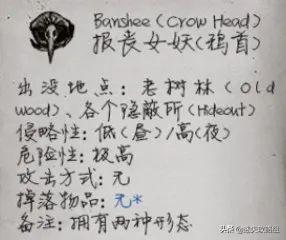 Banshee(Crow Head)
报丧女妖(鸦首)
出没地点：老树林(Old
wood)、各个隐蔽所(Hideout)
侵略性：低(昼)/高(夜)
危险性：极高
攻击方式：无
掉落物品：无*
备注：拥有两种形态